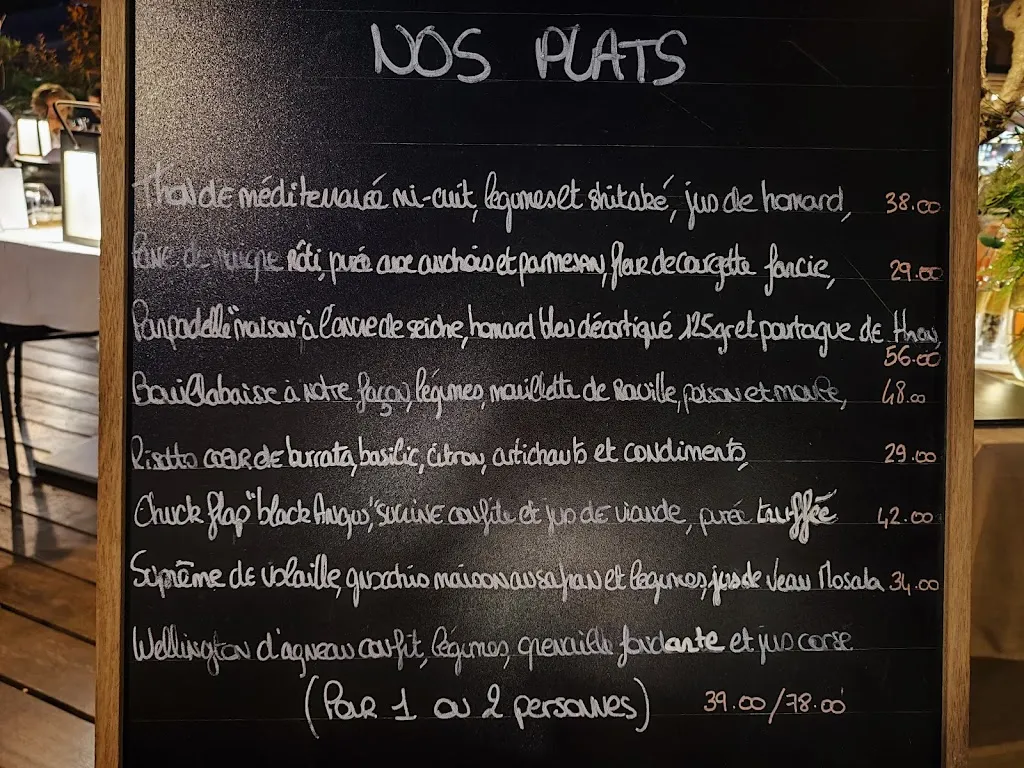 NOS PLATS
Thon de méditerranée mi-cuit, légumes et shitaké, jus de homard, 38.00
de rôti, purée aux anchois et parmesan, fleur de courgette farcie, 29.00
Panpadelle "maison" à l'encre de seiche, homard bleu décortiqué 125gr et poutargue de thon,
56.00
Bouillabaisse à notre façon, légumes, mouillette de Rouille, poisson et moule, 48.00
Risotto cœur de burrata, basilic, citron, artichauts et condiments, 29.00
Chuck flap "black Angus", sucrine confite et jus de viande, purée truffée 42.00
Suprême de volaille, gnocchis maison au safran et legumes, jus de veau Massala 34.00
Wellington d'agneau confit, légumes, grenaille fondante et jus corsé
(Pour 1 ou 2 personnes) 39.00/78.00